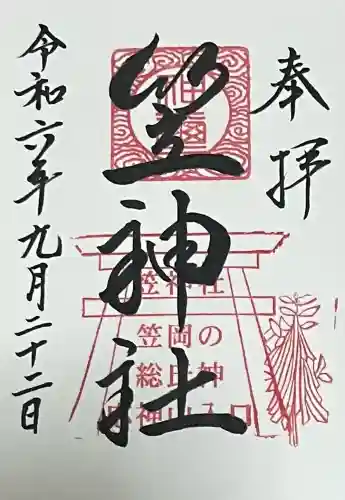 奉拝
笠神社
令和六年九月二十二日
笠神社
笠岡の
総氏神